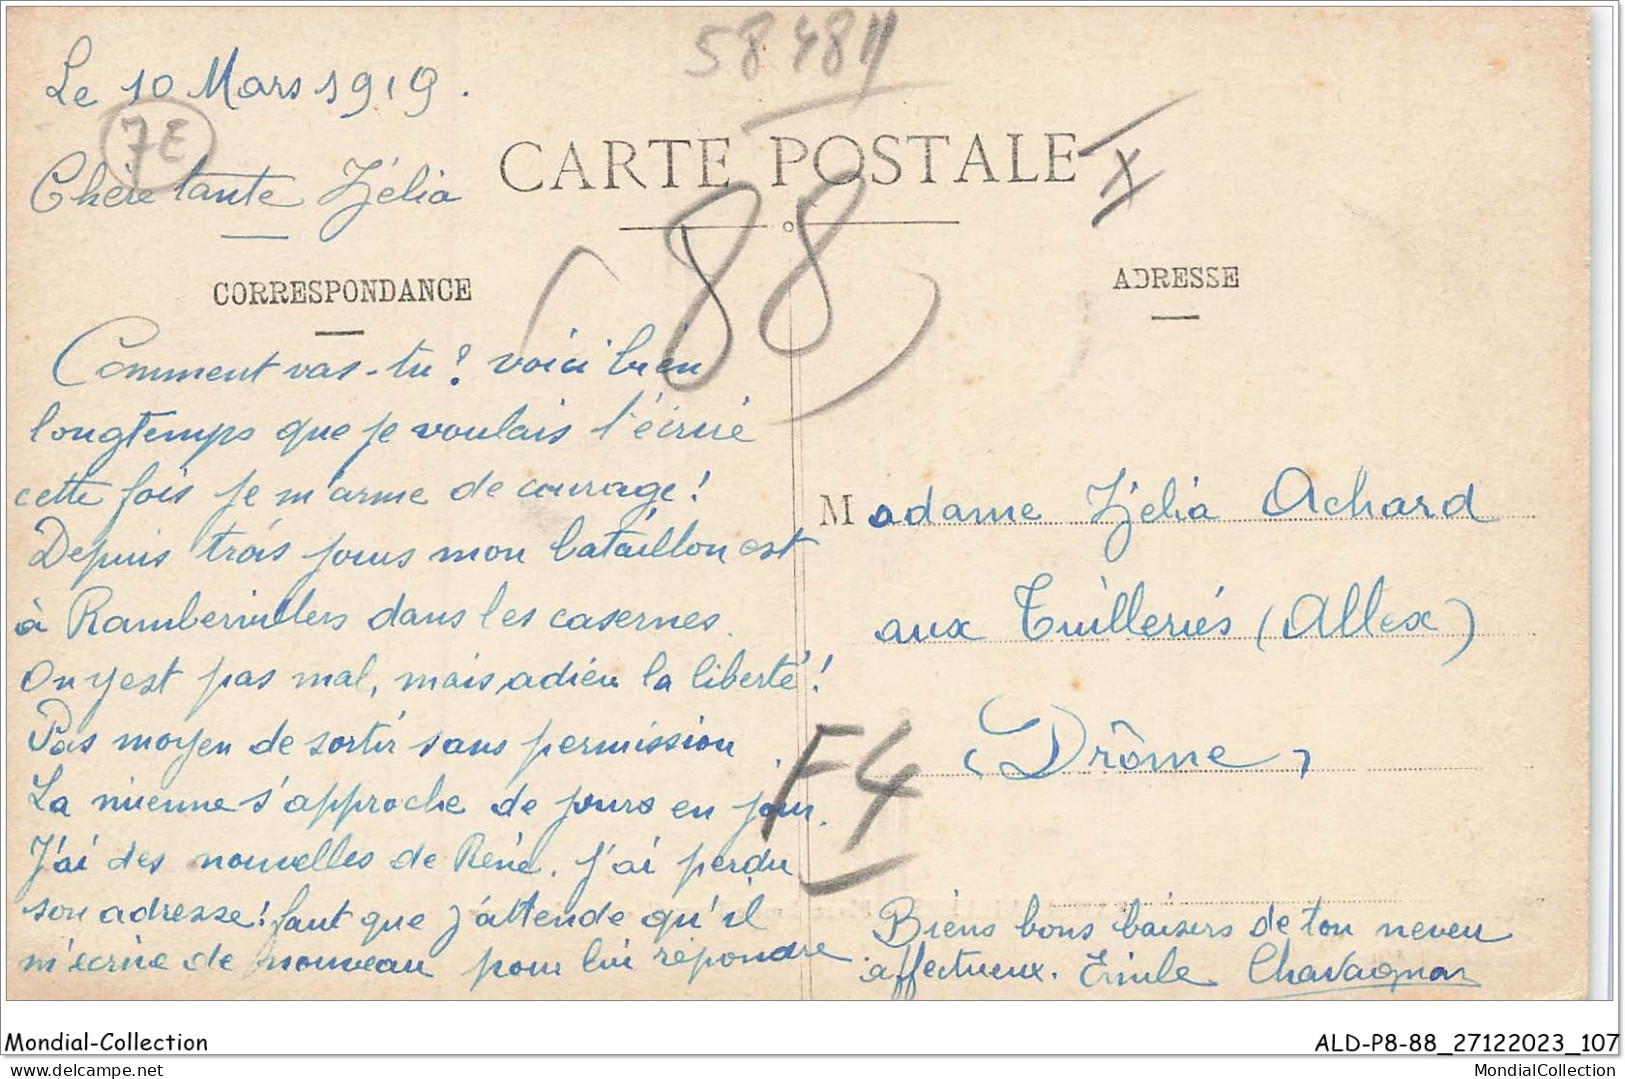 58484
Le 10 Mars 1919.
7E
Chère tante Zélia
CARTE POSTALE
X
88
CORRESPONDANCE
ADRESSE
Comment vas-tu? voici bien
longtemps que je voulais t'écrire
cette fois je m'arme de courage!
Depuis trois jours mon bataillon est
à Rambervillers dans les casernes.
On y est pas mal, mais adieu la liberté!
Pas moyen de sortir sans permission.
La mienne s'approche de jours en jour.
J'ai des nouvelles de René. J'ai perdu
son adresse! faut que j'attende qu'il
m'écrive de nouveau pour lui répondre
Madame Zélia Achard
aux Tuilleries (Allex)
(Drôme)
F4
Biens bons baisers de ton neveu
affectueux. Emile Chavagnar
Mondial-Collection
ALD-P8-88_27122023_107
delcampe.net
MondialCollection